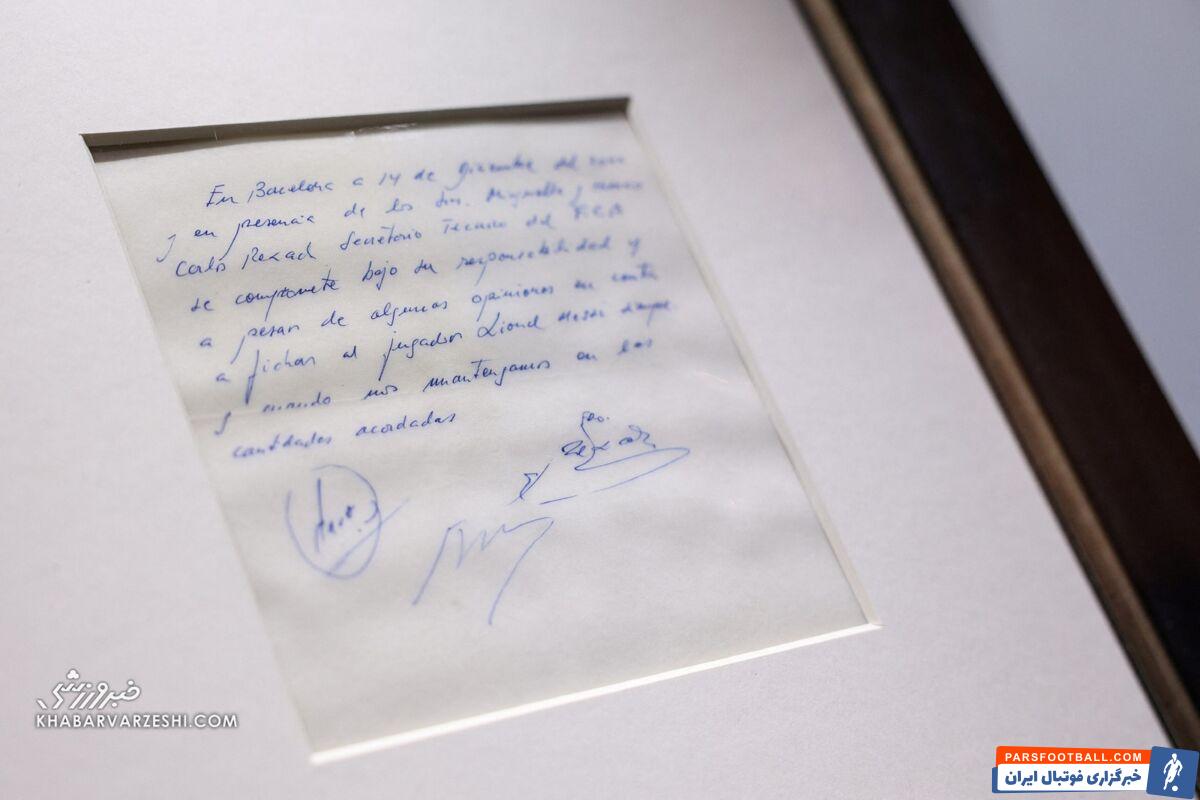 En Barcelona a 14 de Diciembre del 2000
y en presencia de los Srs. Minguella y Horacio
Carlos Rexach Secretario Tecnico del F.C.B
se compromete bajo su responsabilidad y
a pesar de algunas opiniones en contra
a fichar al jugador Lionel Messi siempre
y cuando nos mantengamos en las
cantidades acordadas
خبرورزشی
KHABARVARZESHI.COM
PARSFOOTBALL.COM
خبرگزاری فوتبال ایران